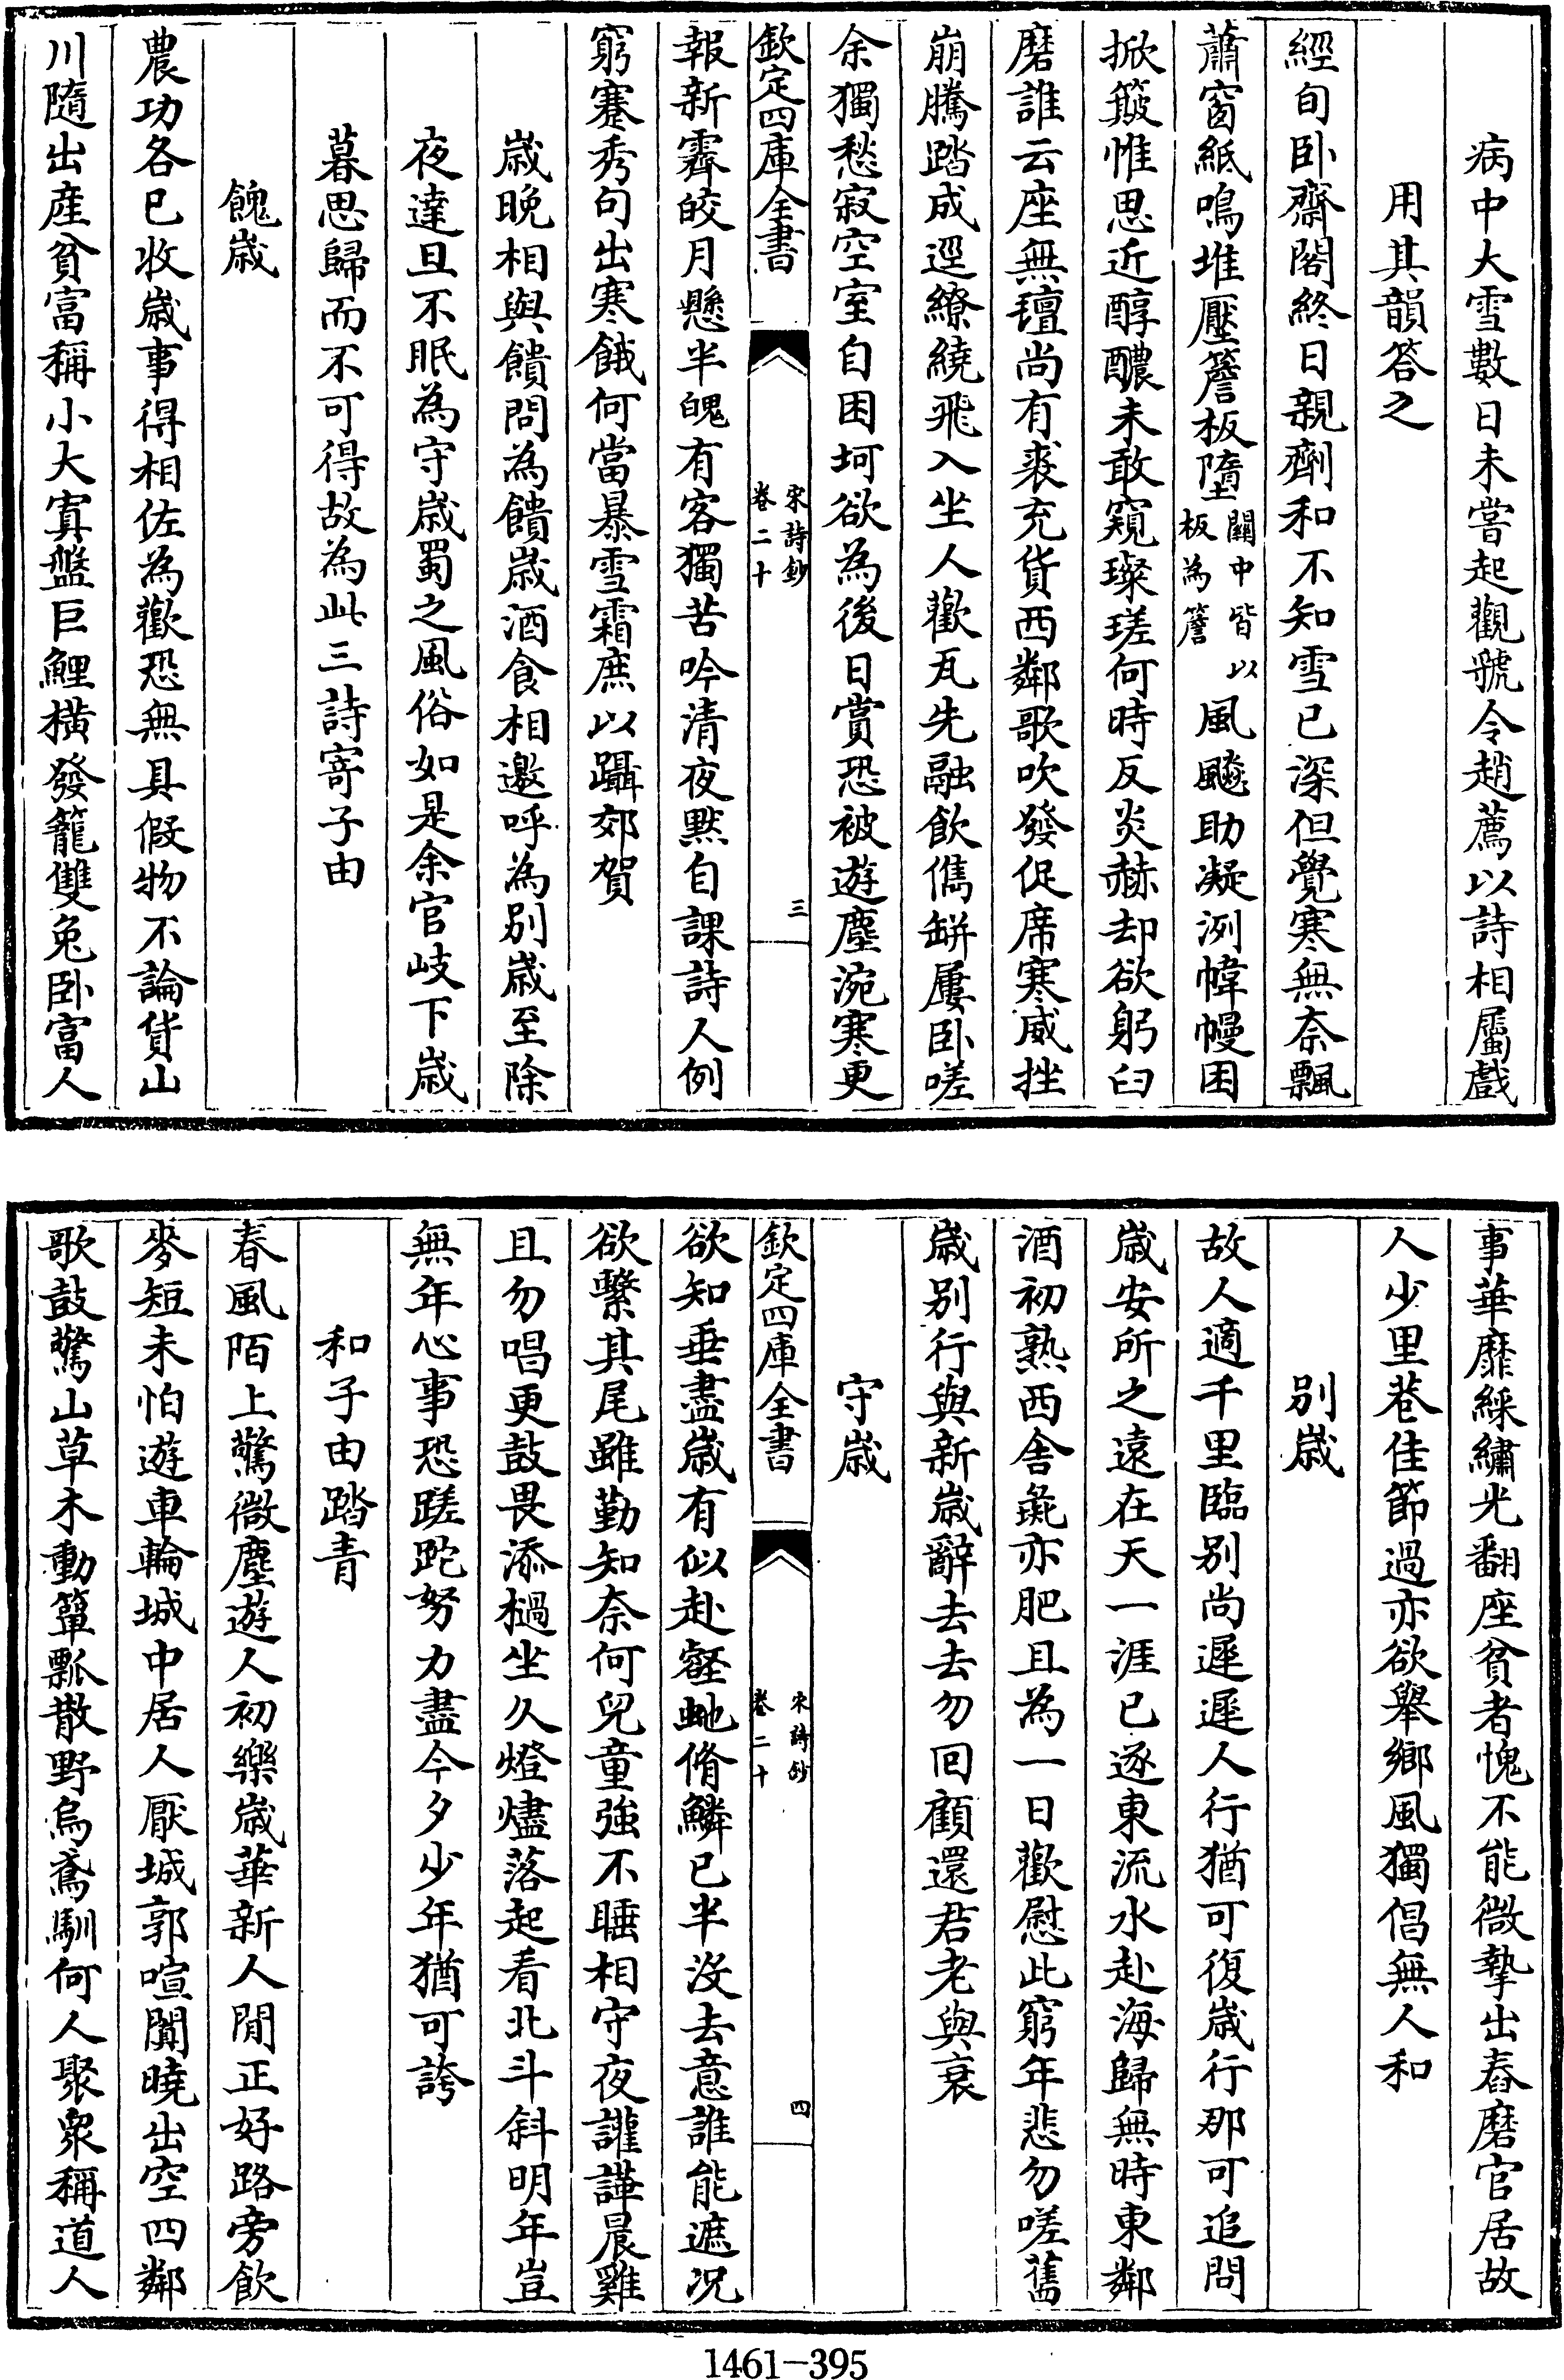 病中大雪數日未嘗起觀虢令趙薦以詩相屬戲
用其韻答之
經旬卧齋閣終日親劑和不知雪已深但覺寒無奈飄
蕭窗紙鳴堆壓簷板墮關中皆以板為簷風飈助凝洌幃幔困
掀簸惟思近醇醲未敢窺璨瑳何時反炎赫却欲躬臼
磨誰云座無氊尚有裘充貨西鄰歌吹發促席寒威挫
崩騰踏成逕繚繞飛入坐人歡瓦先融飲儁缾屢卧嗟
余獨愁寂空室自困坷欲為後日賞恐被遊塵涴寒更
欽定四庫全書 宋詩鈔 卷二十 三
報新霽皎月懸半魄有客獨苦吟清夜默自課詩人例
窮蹇秀句出寒餓何當暴雪霜庶以躡郊賀
歲晚相與饋問為饋歲酒食相邀呼為别歲至除
夜達旦不眠為守歲蜀之風俗如是余官岐下歲
暮思歸而不可得故為此三詩寄子由
餽歲
農功各已收歲事得相佐為歡恐無具假物不論貨山
川隨出産貧富稱小大寘盤巨鯉橫發籠雙兔卧富人
事華靡綵繡光翻座貧者愧不能微摯出舂磨官居故
人少里巷佳節過亦欲舉鄉風獨倡無人和
别歲
故人適千里臨别尚遲遲人行猶可復歲行那可追問
歲安所之遠在天一涯已逐東流水赴海歸無時東鄰
酒初熟西舍彘亦肥且為一日歡慰此窮年悲勿嗟舊
歲别行與新歲辭去去勿回顧還君老與衰
守歲
欽定四庫全書 宋詩鈔 卷二十 四
欲知垂盡歲有似赴壑虵脩鱗已半沒去意誰能遮况
欲繫其尾雖勤知奈何兒童強不睡相守夜讙譁晨雞
且勿唱更鼓畏添檛坐久燈燼落起看北斗斜明年豈
無年心事恐蹉跎努力盡今夕少年猶可誇
和子由踏青
春風陌上驚微塵遊人初樂歲華新人閒正好路旁飲
麥短未怕遊車輪城中居人厭城郭喧闐曉出空四鄰
歌鼓驚山草木動簞瓢散野烏鳶馴何人聚衆稱道人
1461-395